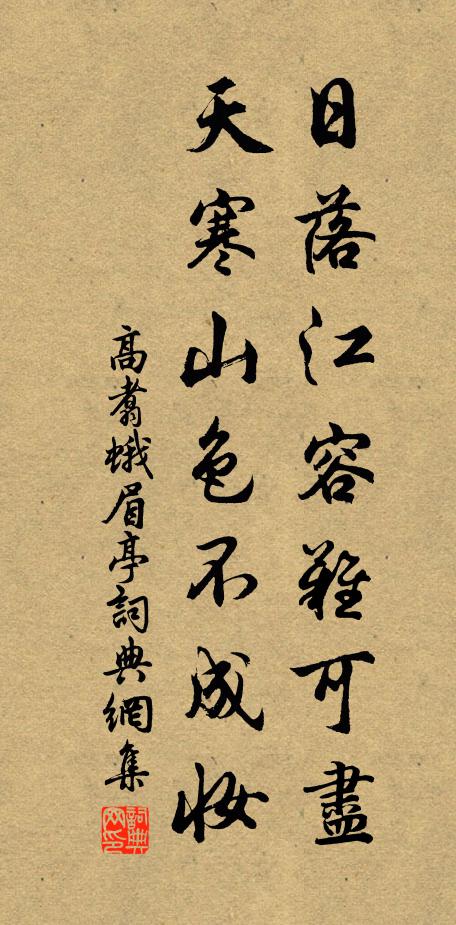 日落江容難可盡
天寒山色不成妝
高翥蛾眉亭詞典網集
詞典网印